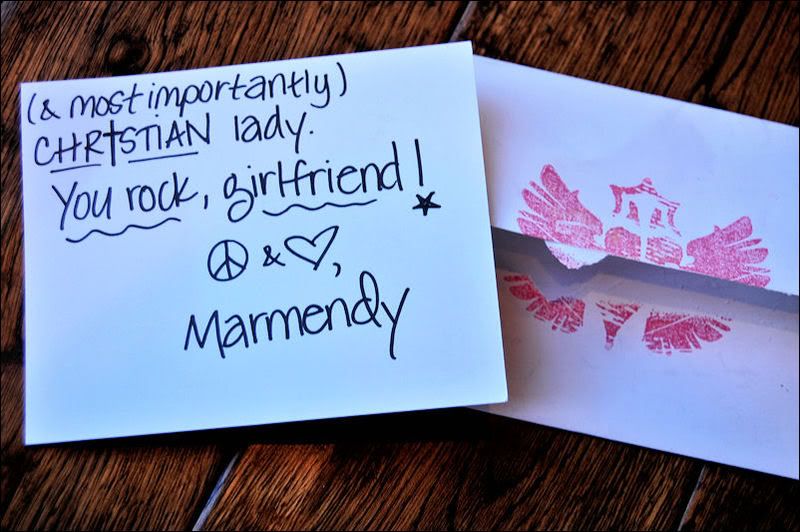 (& most importantly)
CHRISTIAN lady.
You rock, girlfriend!
☮ & ♡,
Marmendy